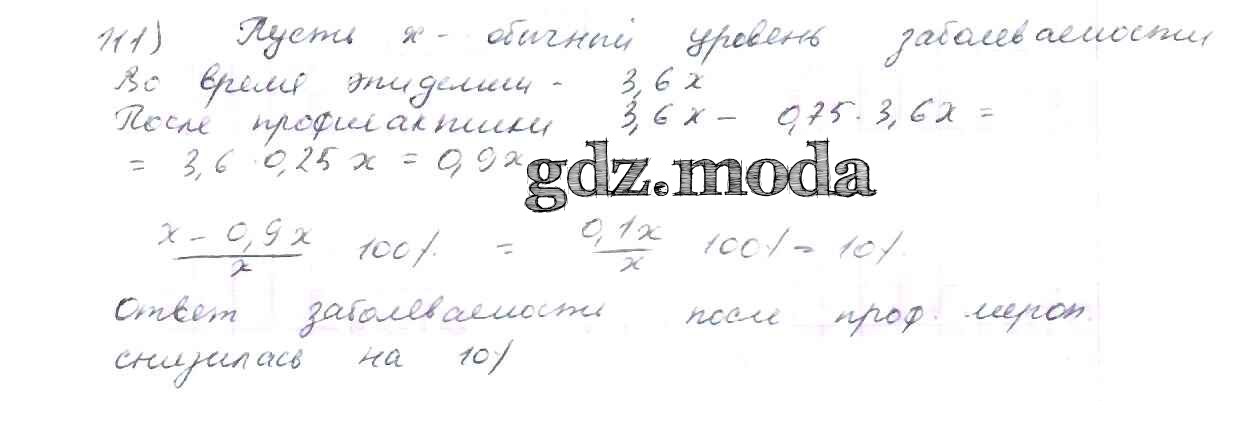 111) Пусть x - обычный уровень заболеваемости
Во время эпидемии - 3,6x
После профилактики 3,6x - 0,75·3,6x =
= 3,6·0,25x = 0,9x
gdz.moda
x - 0,9x / x 100% = 0,1x / x 100% = 10%.
Ответ заболеваемости после проф. мероп.
снизилась на 10%